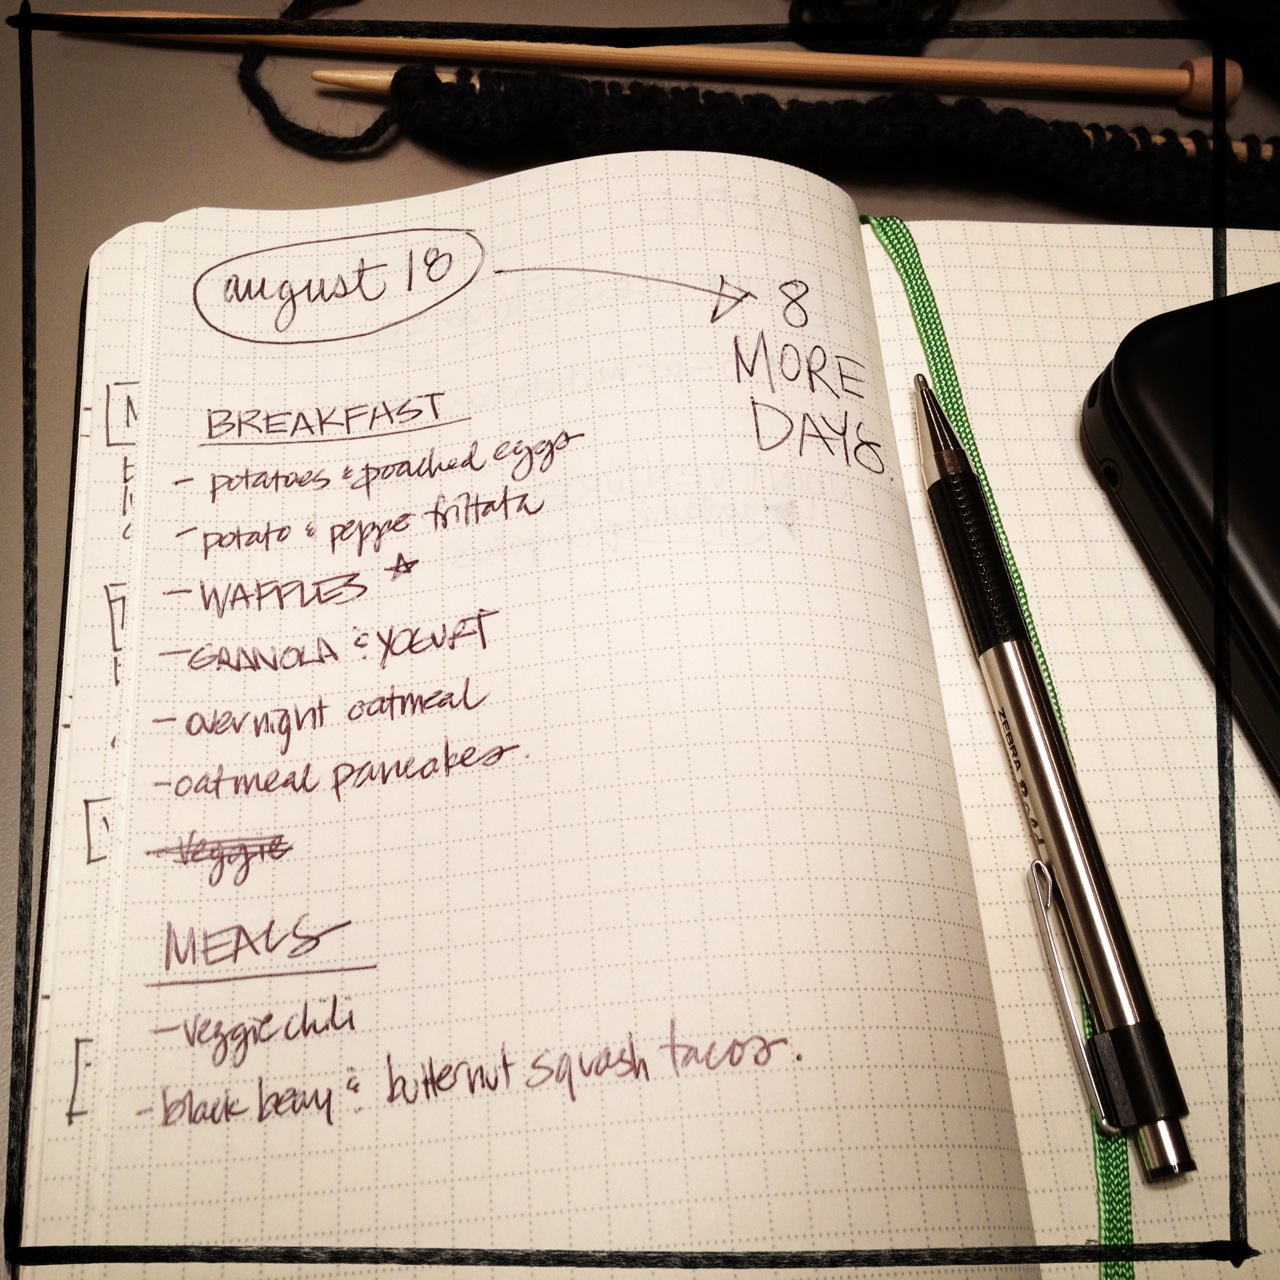 august 18 → 8
MORE
DAYS.
BREAKFAST
- potatoes & poached eggs
- potato & peppe frittata
- WAFFLES ☆
- GRANOLA & YOGURT
- overnight oatmeal
- oatmeal pancakes.
- Veggie
MEALS
- veggie chili
- black bean & butternut squash tacos.
ZEBRA